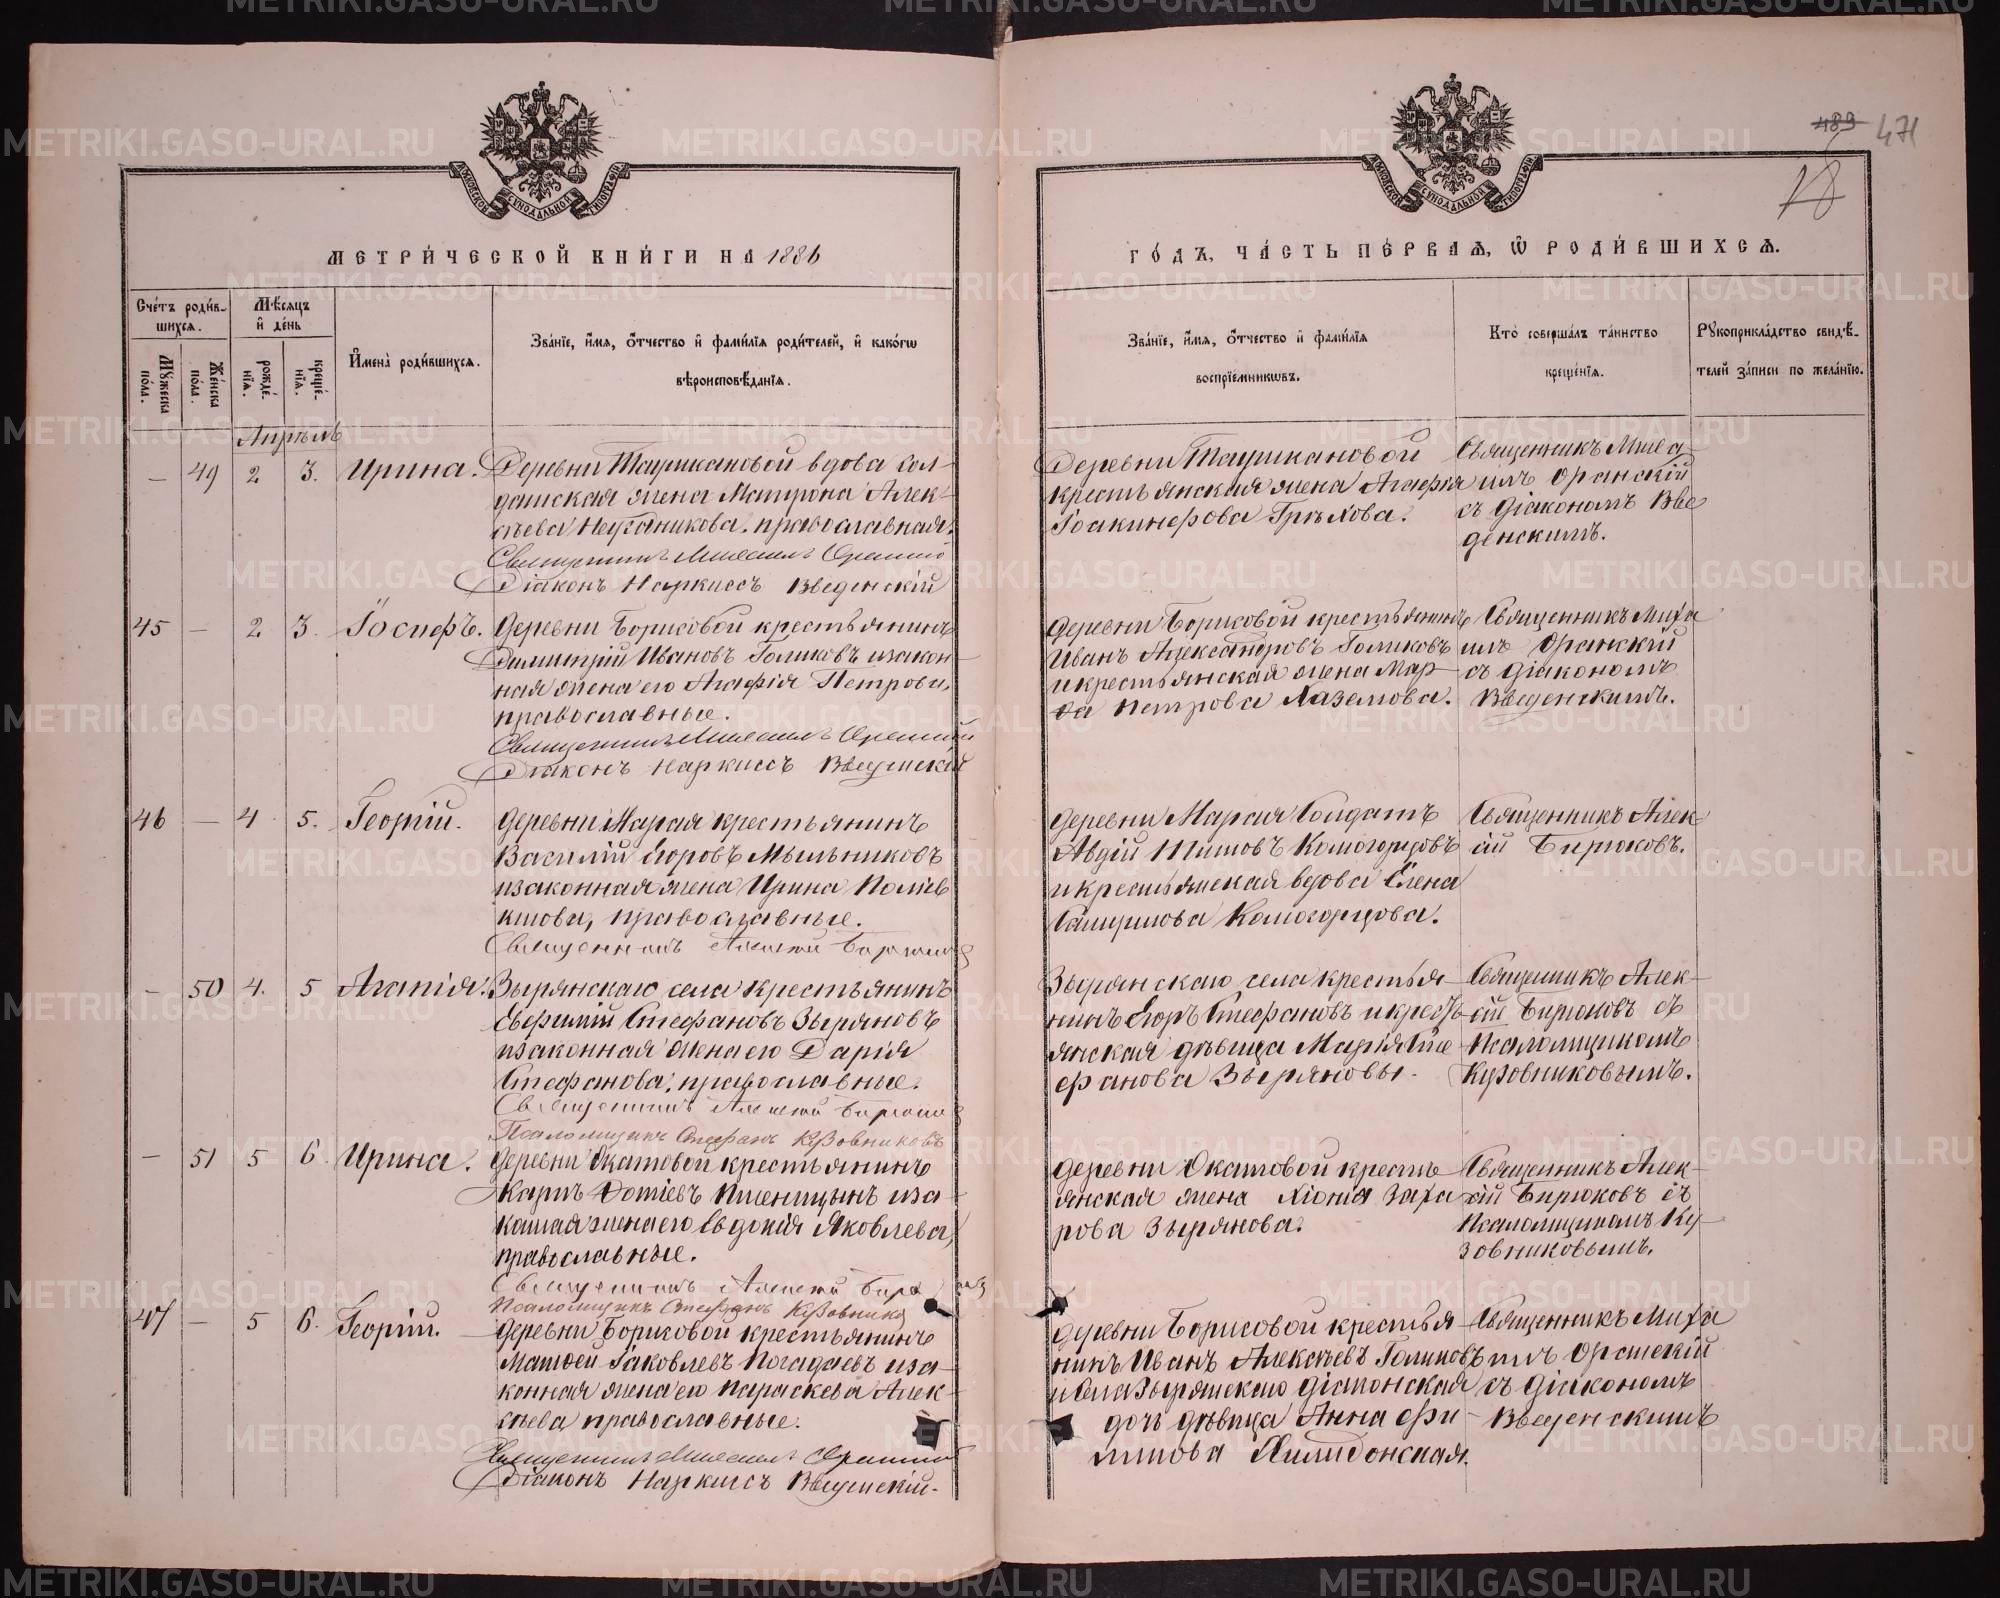 МЕТРИ́ЧЕСКОЙ КНИ́ГИ НА 1886
ГО́ДЪ, ЧА́СТЬ ПЕ́РВАѦ, Ѡ РОДИ́ВШИХСѦ.
489 471
18
Сче́тъ роди́в-
шихсѧ.
Мѣ́сѧцъ
и҆ де́нь
Мꙋ́жеска
по́ла.
Же́нска
по́ла.
рожде́-
нїѧ.
креще́-
нїѧ.
И҆мена̀ роди́вшихсѧ.
Зва́нїе, и҆́мѧ, ѻ҆́тчество и҆ фамі́лїѧ роди́телей, и҆ како́гѡ
вѣроисповѣ́данїѧ.
Зва́нїе, и҆́мѧ, ѻ҆́тчество и҆ фамі́лїѧ
воспрїе́мникѡвъ.
Кто̀ соверша́лъ та́инство
креще́нїѧ.
Рꙋкоприкла́дство свидѣ́-
телей за́писи по жела́нїю.
Апрѣль
— 49 2 3. Ирина. Деревни Таушкановой вдова сол-
датская жена Матрона Алек-
сѣева православная.
Священникъ Михаилъ Оранскій
Діаконъ Наркиссъ Введенскій
Деревни Таушкановой
крестьянская жена Агафія
Іоакинфова Грѣхова.
Священникъ Миха
илъ Оранскій
съ діакономъ Вве
денскимъ.
45 — 2 3. Іосифъ. Деревни Борисовой крестьянинъ
Димитрій Ивановъ Голиковъ и закон-
ная жена его Агафія Петрова,
православные.
Священникъ Михаилъ Оранскій
Діаконъ Наркиссъ Введенскій
Деревни Борисовой крестьянинъ
Иванъ Александровъ Голиковъ
и крестьянская жена Мар-
ѳа Петрова
Священникъ Миха
илъ Оранскій
съ діакономъ
Введенскимъ.
46 — 4 5. Георгій. Деревни Марая крестьянинъ
Василій Егоровъ Мыльниковъ
и законная жена Ирина Поліев
ктова, православные.
Священникъ Алексѣй Бирюковъ
Деревни Марая Солдатъ
Авдій Титовъ Комогорцовъ
и крестьянская вдова Елена
Комогорцова.
Священникъ Алек-
сій Бирюковъ.
— 50 4. 5 Агапія. Зырянскаго села крестьянинъ
Евфимій Стефановъ Зыряновъ
и законная жена его Дарія
Стефанова, православные.
Священникъ Алексѣй Бирюковъ
Псаломщикъ Стефанъ Кузовниковъ
Зырянскаго села крестья-
нинъ Егоръ Стефановъ и кресть-
янская дѣвица Марія Сте
фанова Зыряновы.
Священникъ Алек-
сій Бирюковъ съ
Псаломщикомъ
Кузовниковымъ.
— 51 5 6 Ирина. Деревни Окатовой крестьянинъ
Карпъ Фотіевъ Пшеницынъ и за-
конная жена его Евдокія Яковлева,
православные.
Священникъ Алексѣй Бирюковъ
Псаломщикъ Стефанъ Кузовников
Деревни Окатовой кресть-
янская жена Хіонія Заха
рова Зырянова.
Священникъ Алек-
сій Бирюковъ съ
Псаломщикомъ Ку-
зовниковымъ.
47 — 5 6. Георгій. Деревни Борисовой крестьянинъ
Матѳей Іаковлевъ Погадаевъ и за-
конная жена его Параскева Алек-
сѣева, православные.
Священникъ Михаилъ Оранскій
Діаконъ Наркиссъ Введенскій.
Деревни Борисовой крестья-
нинъ Иванъ Алексѣевъ Голиковъ
и села Зырянскаго діаконская
дочь дѣвица Анна Фи-
липова Хилидонская.
Священникъ Миха
илъ Оранскій
съ діакономъ
Введенскимъ
METRIKI.GASO-URAL.RU